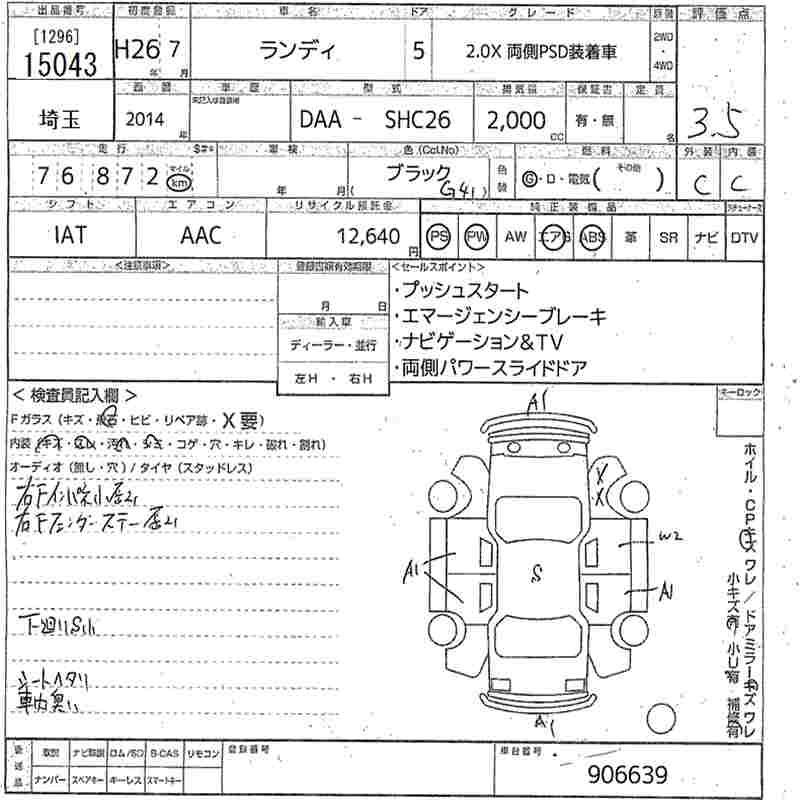 出品番号 初度登録 車名 ドア グレード 駆動 評価点
[1296] 15043 H26年 7月 ランディ 5 2.0X 両側PSD装着車 2WD ・ 4WD 3.5
車歴 型式 排気量 保証書 定員
埼玉 2014年 DAA - SHC26 2,000CC 有・無 名
走行 車検 色(Col.No) 燃料 外装 内装
76,872 マイル km 年 月( ブラック G41) 色替 G・D・電気( その他 ) C C
シフト エアコン リサイクル預託金 純正装備品
IAT AAC 12,640円 PS PW AW エアB ABS 革 SR ナビ DTV
<注意事項> 登録書類有効期限 <セールスポイント>
月 日
輸入車
ディーラー・並行
左H ・ 右H
・プッシュスタート
・エマージェンシーブレーキ
・ナビゲーション&TV
・両側パワースライドドア
< 検査員記入欄 >
モーロック
Fガラス (キズ・飛石・ヒビ・リペア跡・X要)
内装 (キズ・スレ・汚れ・シミ・コゲ・穴・キレ・破れ・割れ)
オーディオ (無し・穴) / タイヤ (スタッドレス)
右Fインパネ小凹
右Fフェンダーステー凹
下廻りS小
シートヘタリ
車内臭い
A1
X
X
W2
S
A1
A1
A1
ホイル・CPキズ ワレ / ドアミラーキズ ワレ
小キズ有 小U有 補修有
後送品 取説 ナビ取説 ロム/SD B-CAS リモコン 登録番号 車台番号
ナンバー スペアキー キーレス スマートキー 906639